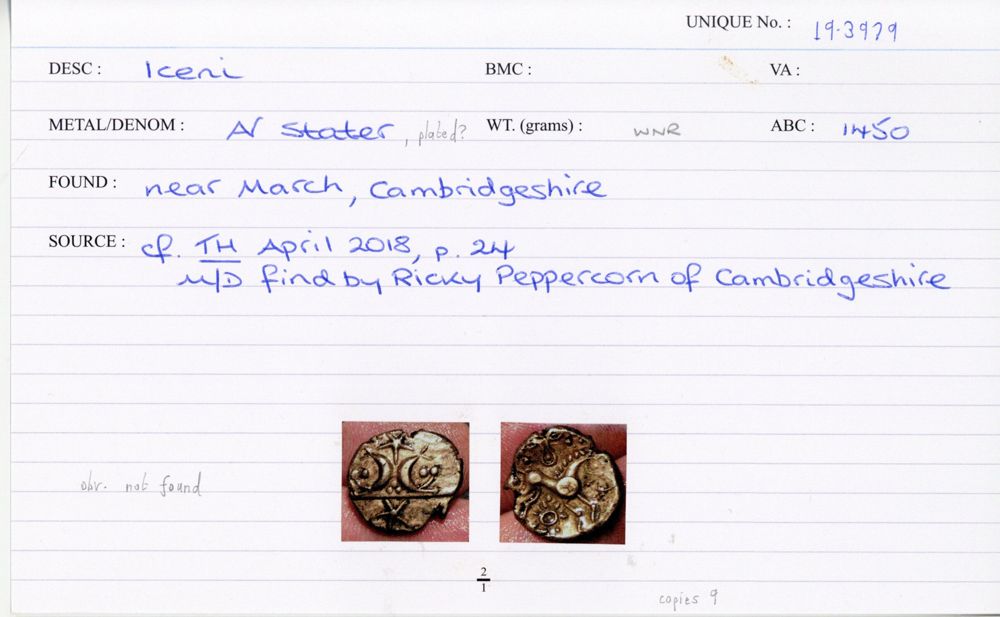 UNIQUE No. : 19.3979
DESC : Iceni BMC : VA :
METAL/DENOM : AV Stater, plated? WT. (grams) : WNR ABC : 1450
FOUND : near March, Cambridgeshire
SOURCE : cf. TH April 2018, p. 24
M/D find by Ricky Peppercorn of Cambridgeshire
obv. not found
2
1
copies 9